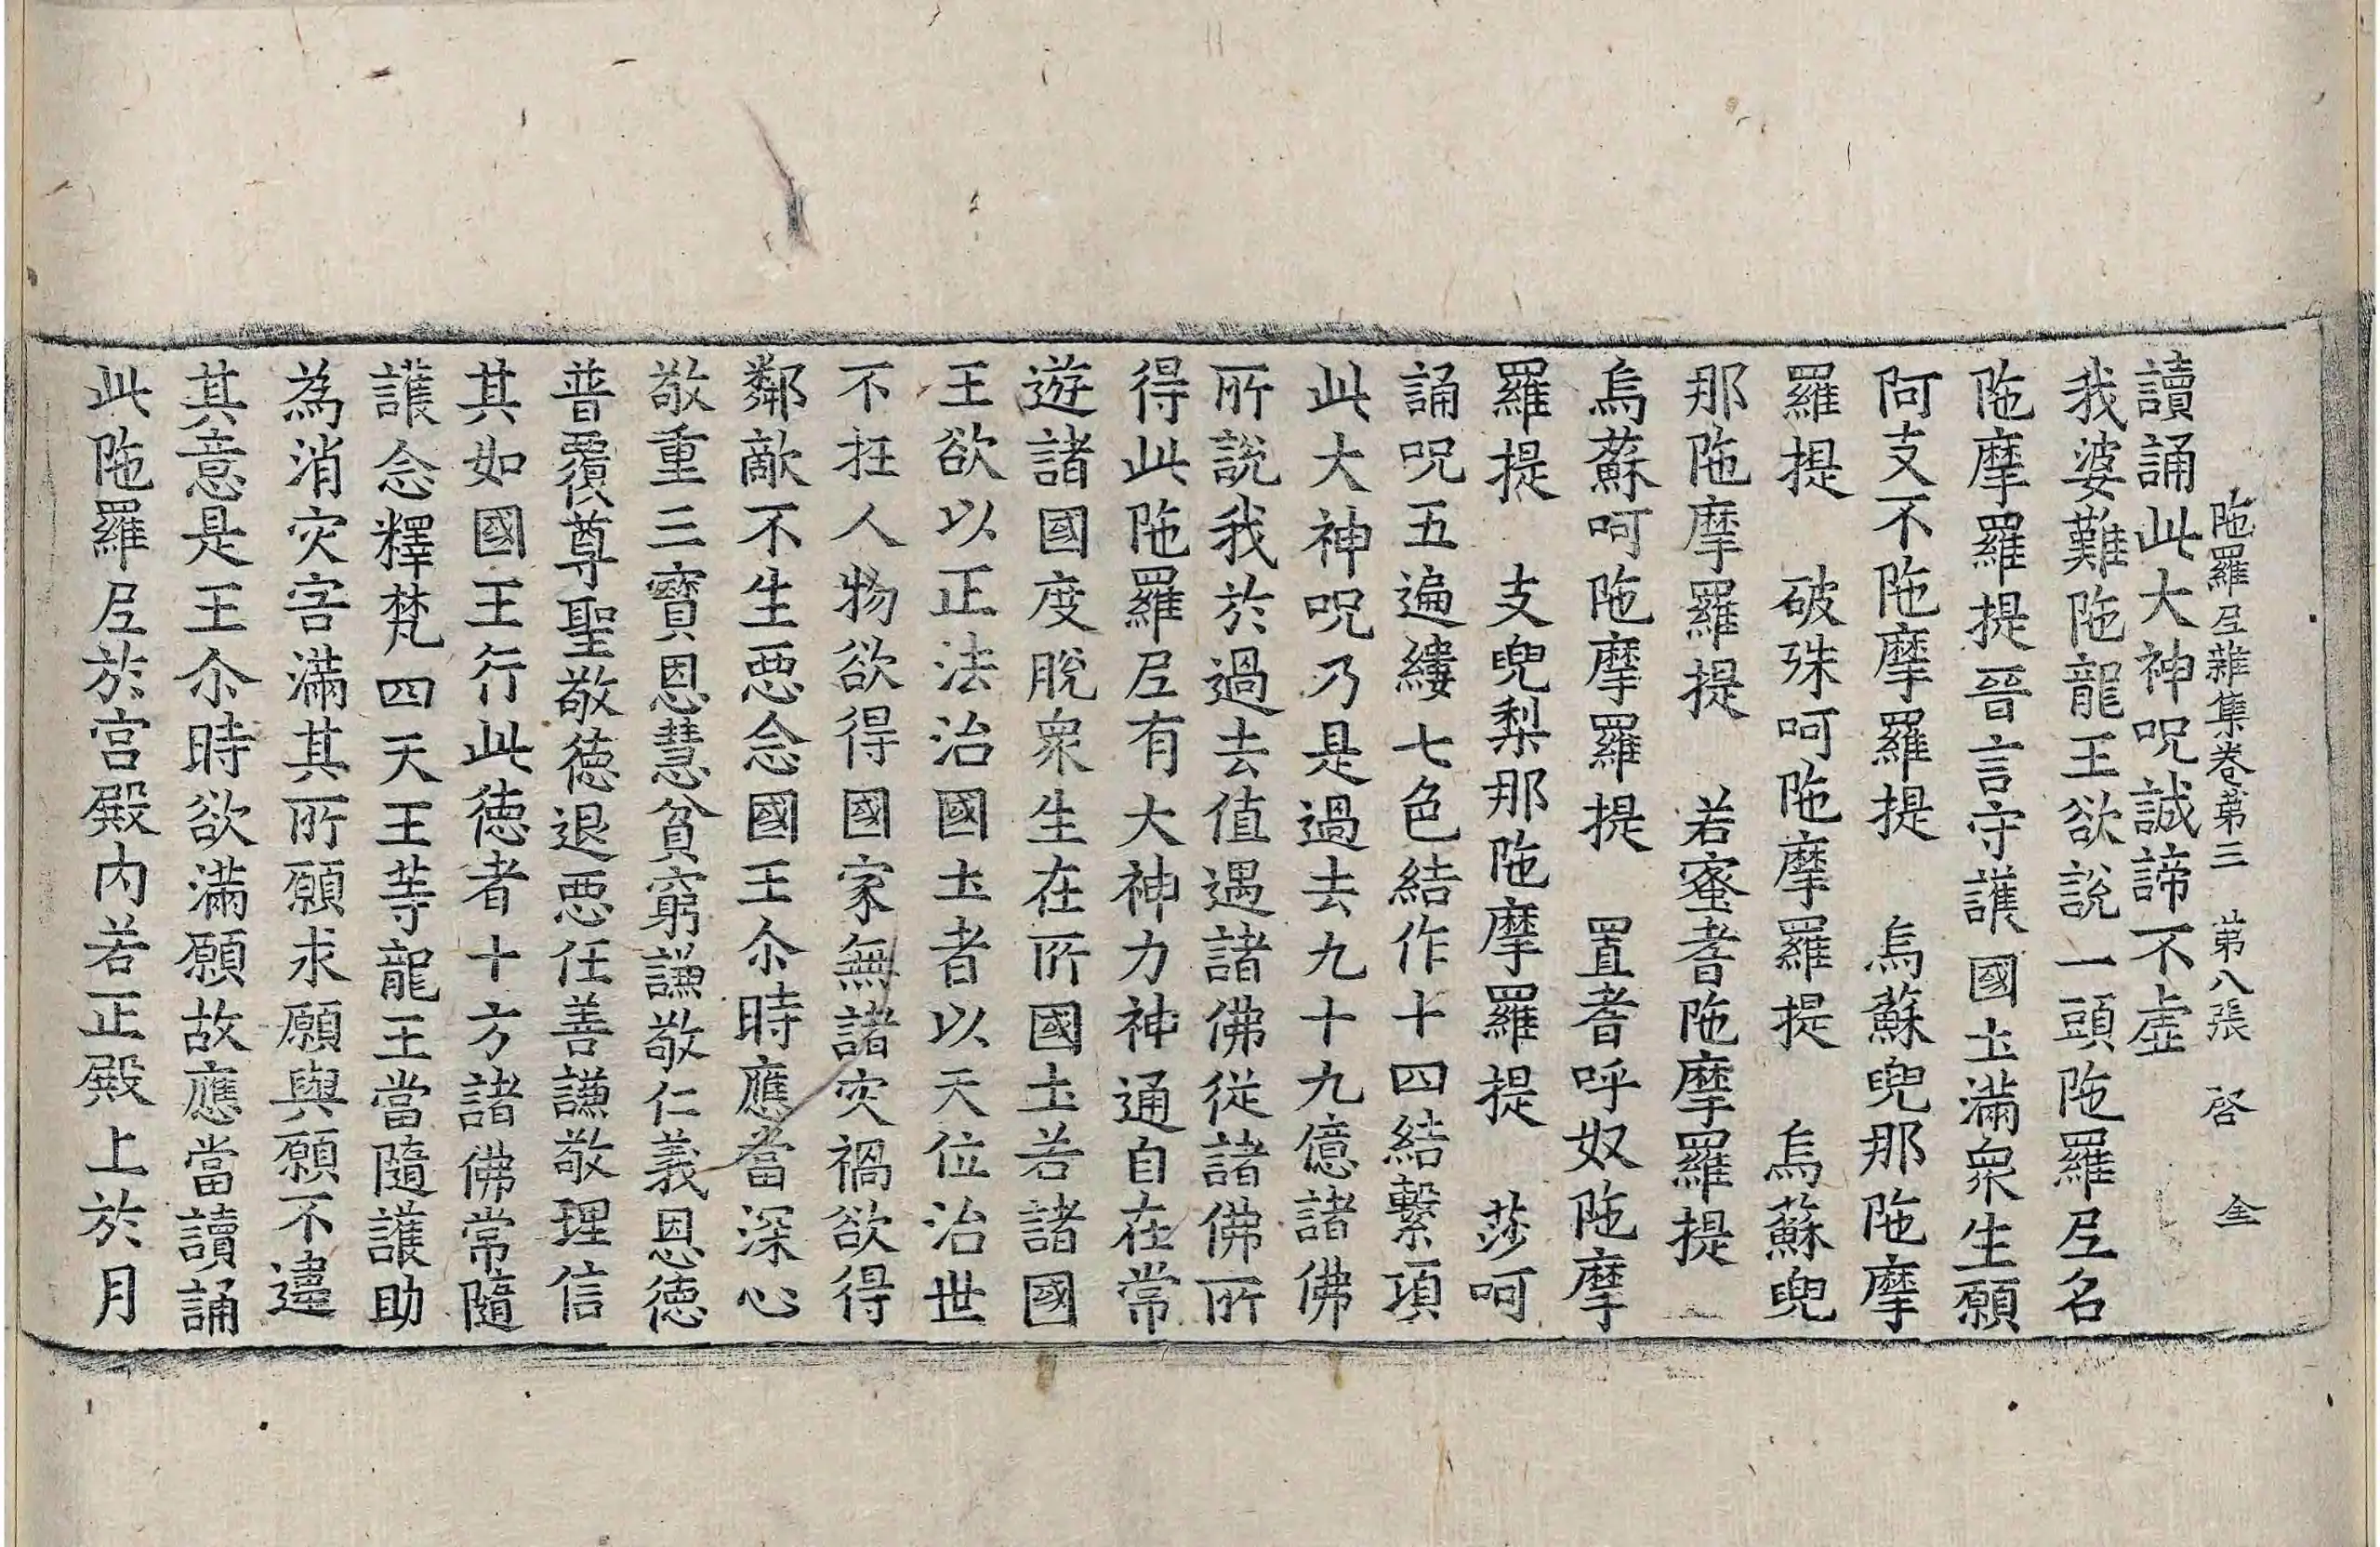 陁羅尼雜集卷苐三 苐八張 啓 全
讀誦此大神呪誠諦不虛
我婆難陁龍王欲說一頭陁羅尼名
陁摩羅提晉言守護國土滿衆生願
阿支不陁摩羅提 烏蘇兜那陁摩
羅提 破殊呵陁摩羅提 烏蘇兜
那陁摩羅提 若蜜耆陁摩羅提
烏蘇呵陁摩羅提 置耆呼奴陁摩
羅提 支兜梨那陁摩羅提 莎呵
誦呪五遍縷七色結作十四結繫項
此大神呪乃是過去九十九億諸佛
所說我於過去值遇諸佛從諸佛所
得此陁羅尼有大神力神通自在常
遊諸國度脫衆生在所國土若諸國
王欲以正法治國土者以天位治世
不抂人物欲得國家無諸灾禍欲得
鄰敵不生惡念國王尒時應當深心
敬重三寶恩慧貧窮謙敬仁義恩德
普覆尊聖敬德退惡任善謙敬理信
其如國王行此德者十方諸佛常隨
護念釋梵四天王等龍王當隨護助
為消灾害滿其所願求願與願不違
其意是王尒時欲滿願故應當讀誦
此陁羅尼於宮殿內若正殿上於月